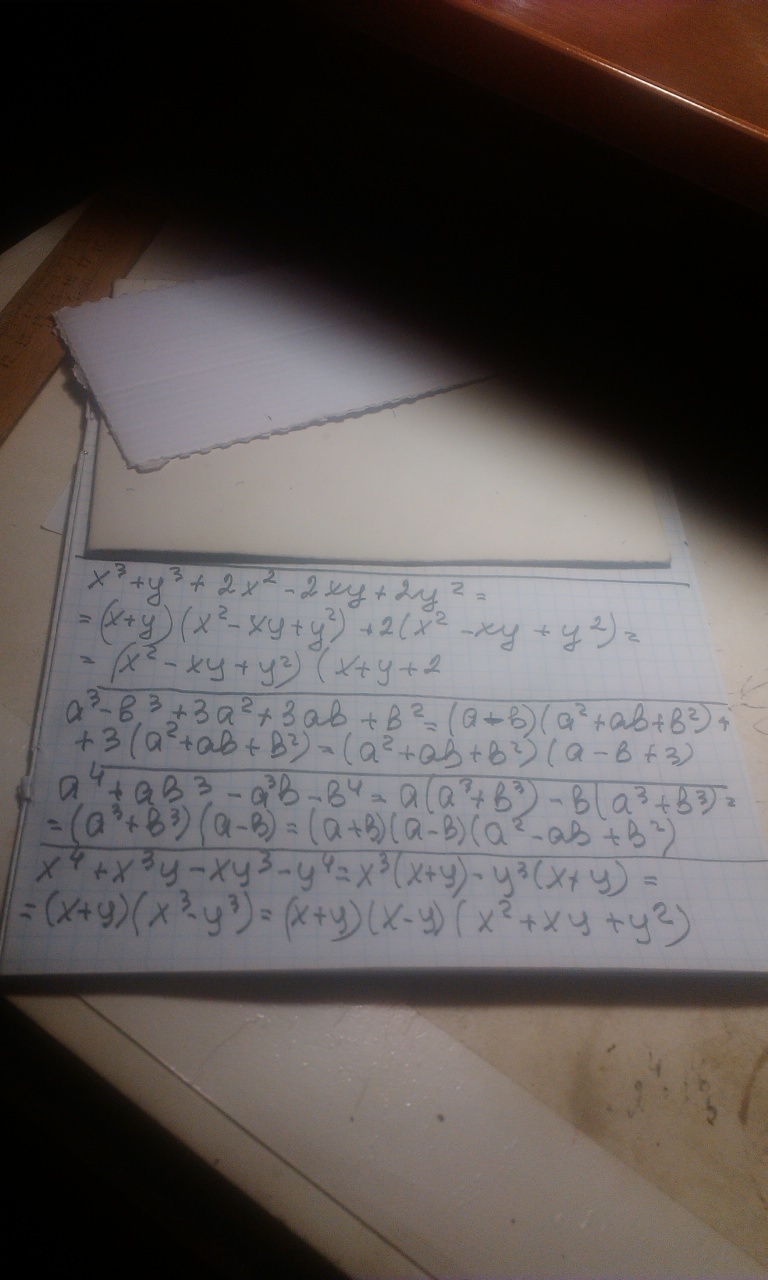 x³+y³+2x²-2xy+2y²=
=(x+y)(x²-xy+y²)+2(x²-xy+y²)=
=(x²-xy+y²)(x+y+2
a³-в³+3a²+3aв+в²=(a-в)(a²+aв+в²)+
+3(a²+aв+в²)=(a²+aв+в²)(a-в+3)
a⁴+aв³-a³в-в⁴=a(a³+в³)-в(a³+в³)=
=(a³+в³)(a-в)=(a+в)(a-в)(a²-aв+в²)
x⁴+x³y-xy³-y⁴=x³(x+y)-y³(x+y)=
=(x+y)(x³-y³)=(x+y)(x-y)(x²+xy+y²)